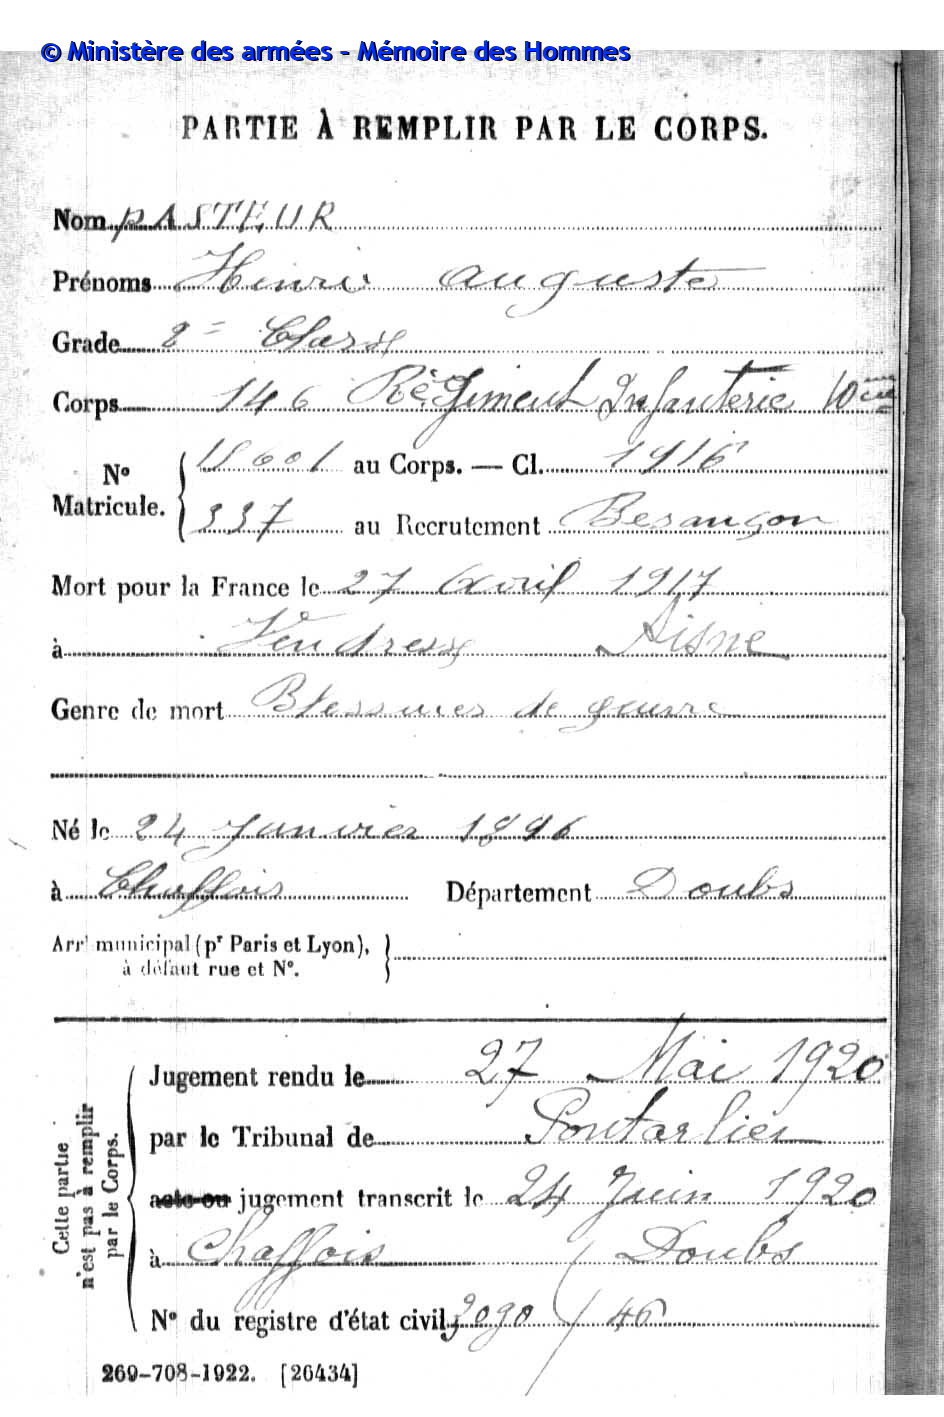 © Ministère des armées - Mémoire des Hommes
PARTIE À REMPLIR PAR LE CORPS.
Nom PASTEUR
Prénoms Henri auguste
Grade 2e Classe
Corps 146 Régiment Infanterie 10me
No Matricule. 11601 au Corps. — Cl. 1916
337 au Recrutement Besançon
Mort pour la France le 27 Avril 1917
à Vendresse Aisne
Genre de mort Blessures de guerre
Né le 24 Janvier 1896
à Chaffois Département Doubs
Arrt municipal (pr Paris et Lyon),
à défaut rue et No.
Cette partie n'est pas à remplir par le Corps.
Jugement rendu le 27 Mai 1920
par le Tribunal de Pontarlier
acte ou jugement transcrit le 24 Juin 1920
à Chaffois / Doubs
No du registre d'état civil / 46
269-708-1922. [26434]